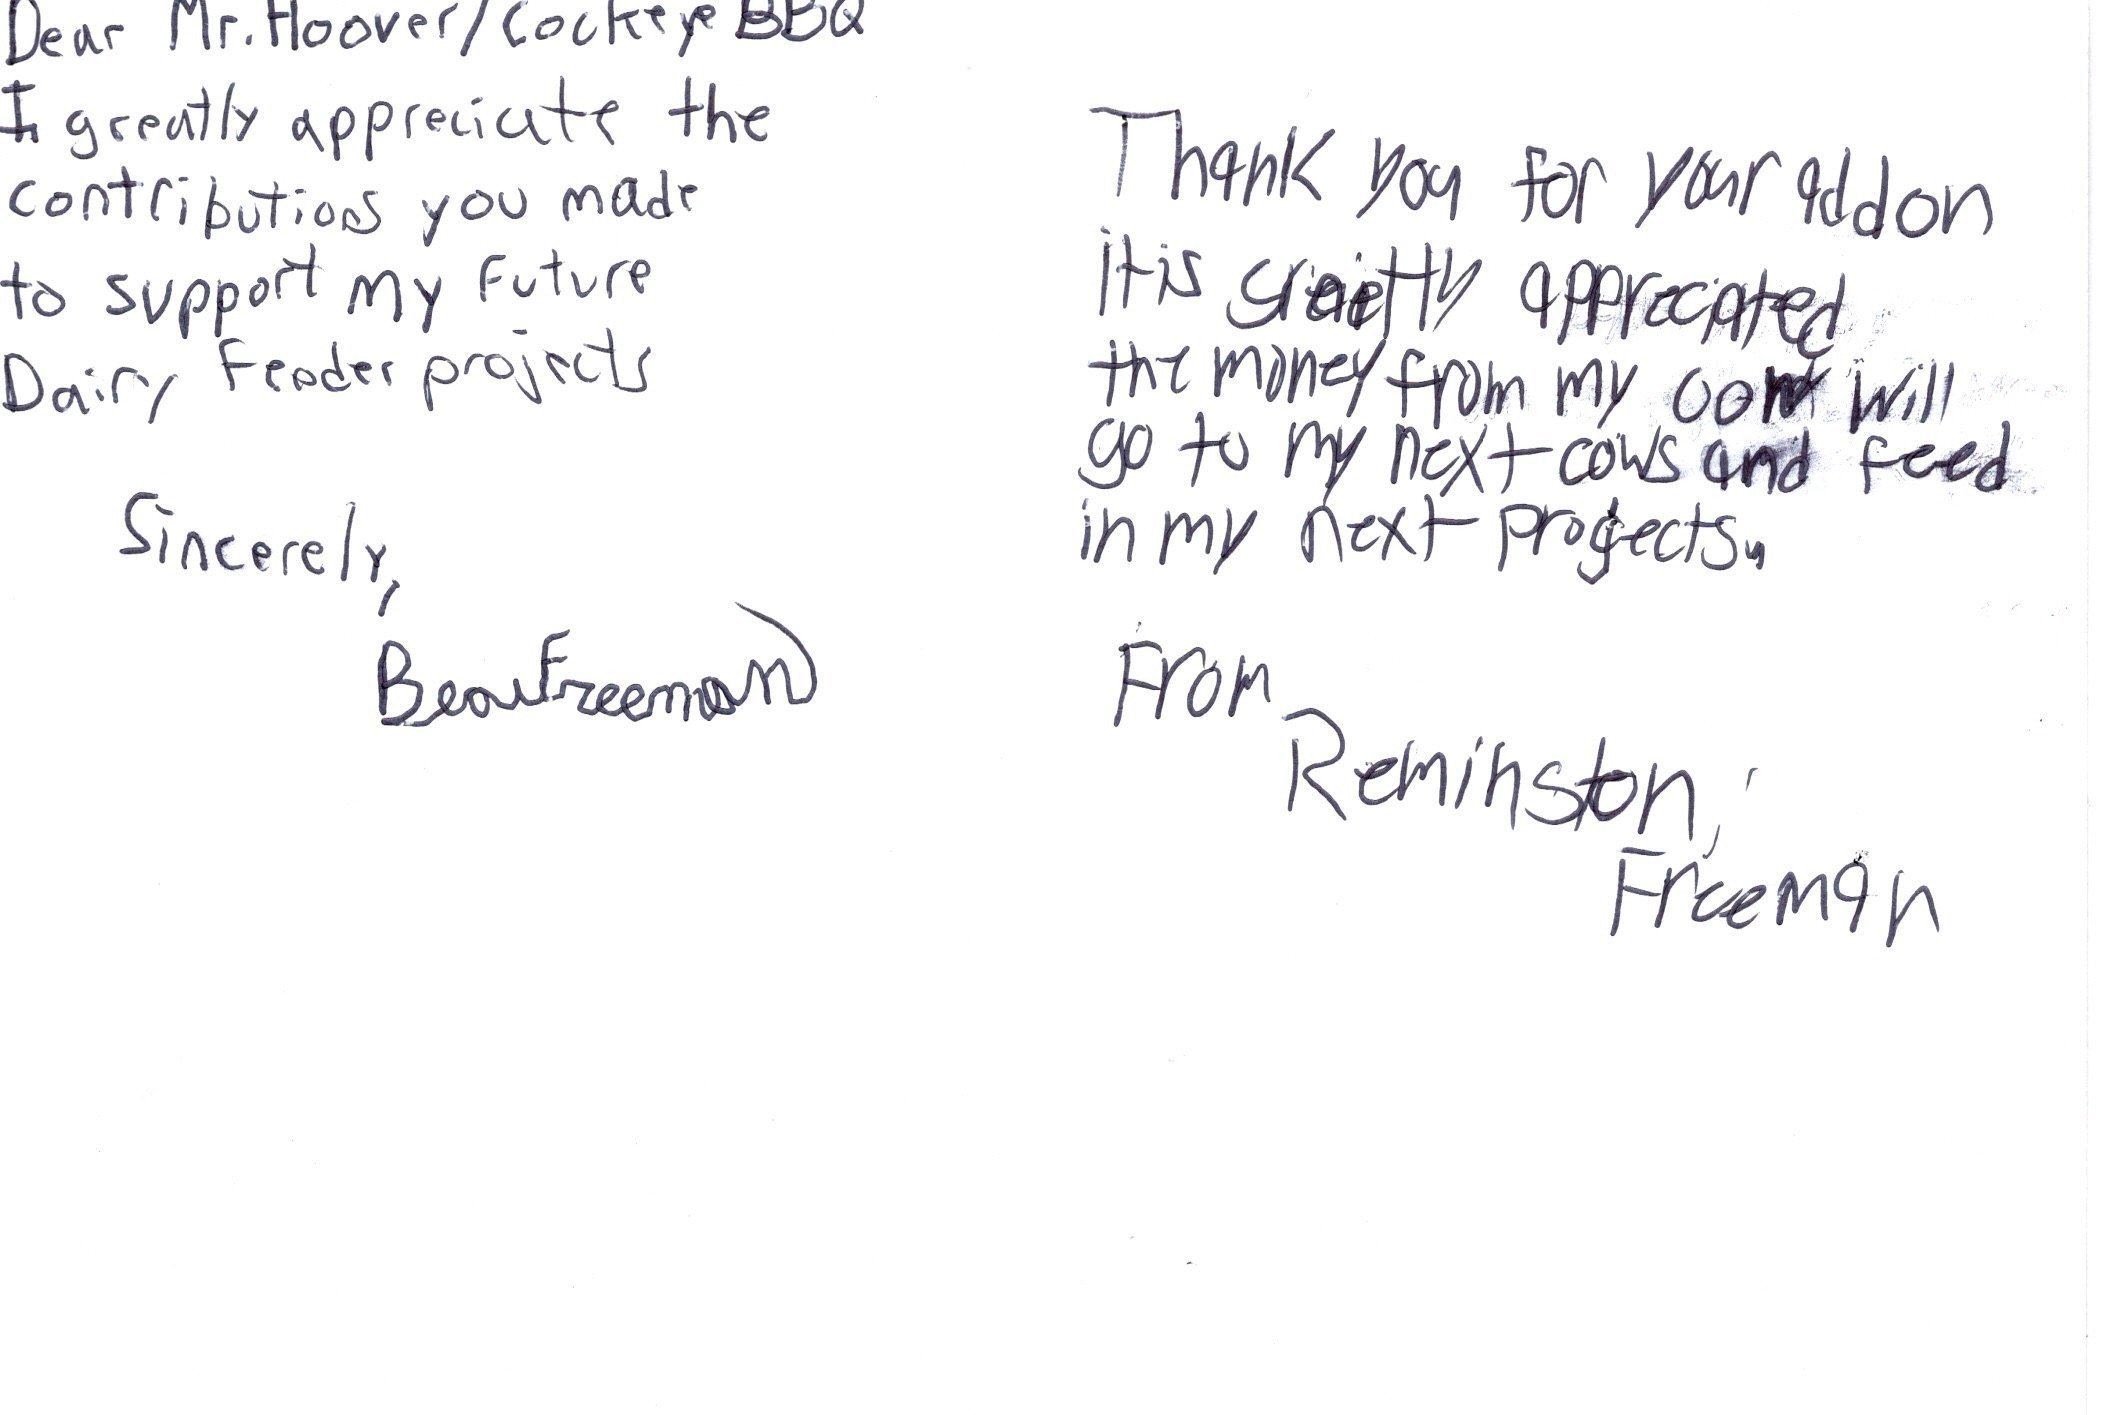 Dear Mr. Hoover/Cockeye BBQ
I greatly appreciate the
contributions you made
to support my Future
Dairy Feeder projects
Sincerely,
Beau Freeman
Thank you for your addon
it is appreciated
the money from my will
go to my next cows and feed
in my next progects.
From
Reminston,
Freeman